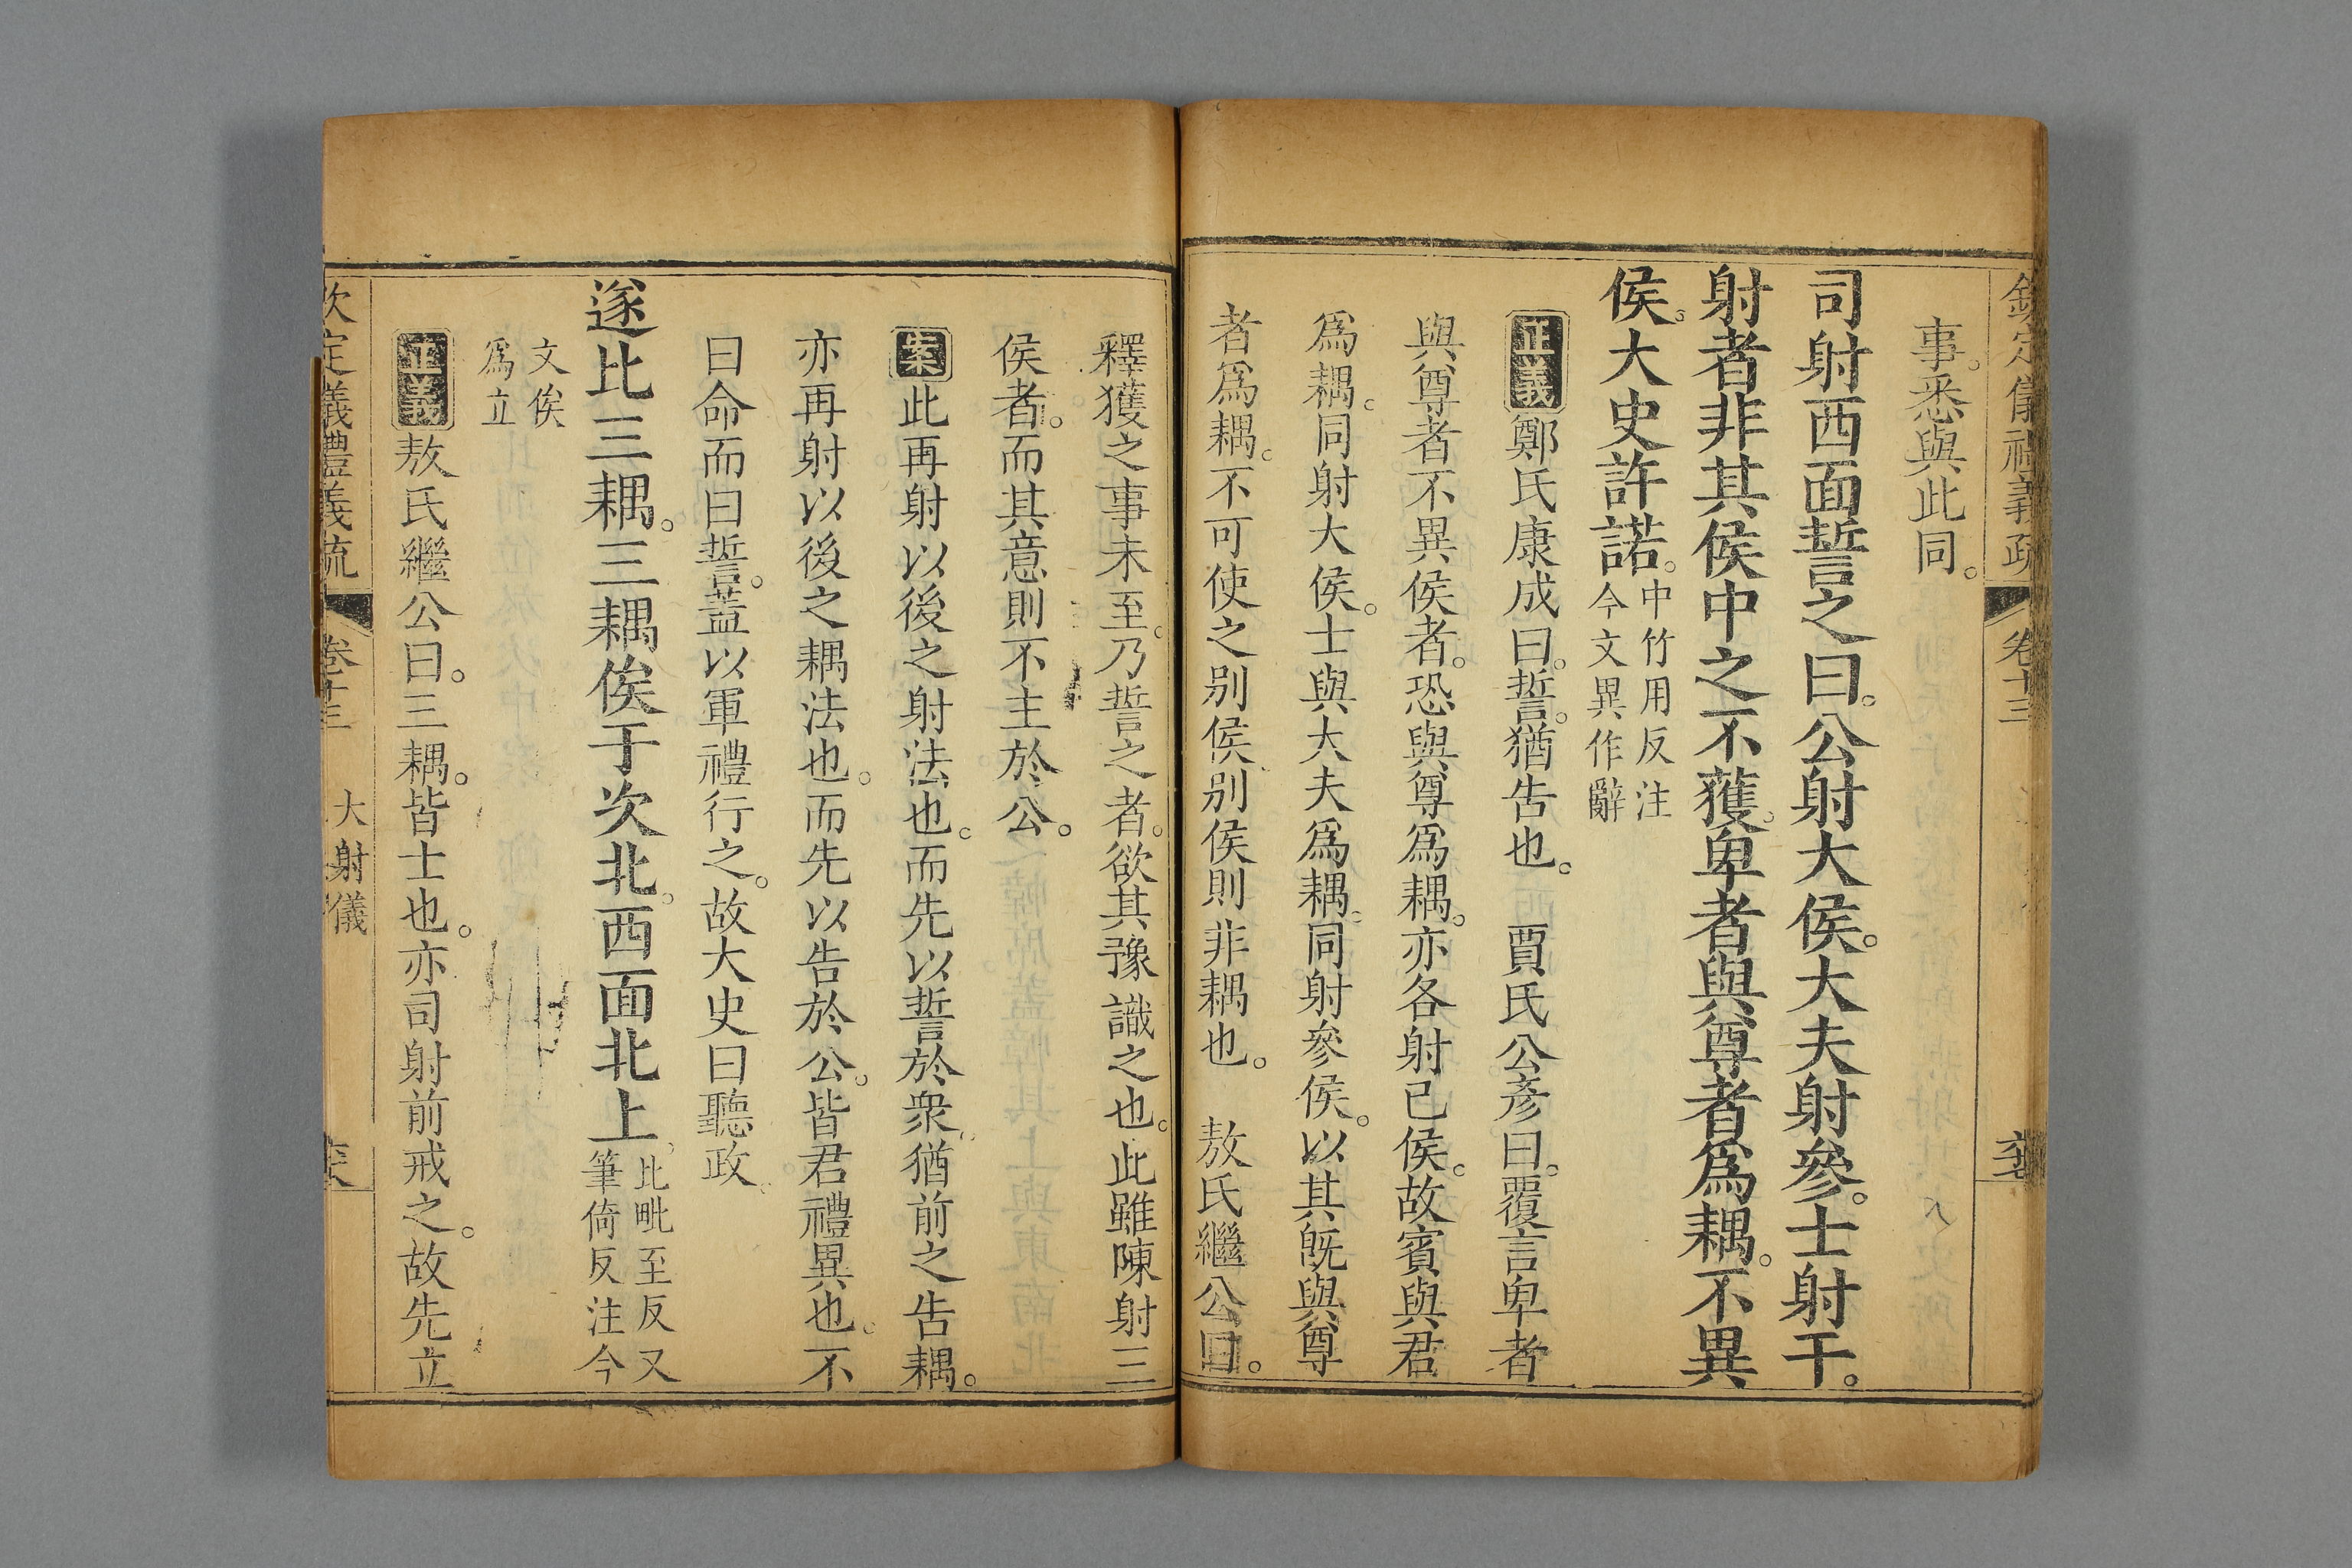 欽定儀禮義疏 卷十三
事。悉與此同。
司射西面誓之曰。公射大侯。大夫射參。士射干。
射者非其侯中之不獲。卑者與尊者爲耦。不異
侯。大史許諾。
中竹用反注
今文異作辭
正義鄭氏康成曰。誓。猶告也。 賈氏公彥曰。覆言卑者
與尊者不異侯者。恐與尊爲耦。亦各射已侯。故賓與君
爲耦。同射大侯。士與大夫爲耦。同射參侯。以其旣與尊
者爲耦。不可使之别侯。别侯則非耦也。 敖氏繼公曰。
釋獲之事未至。乃誓之者。欲其豫識之也。此雖陳射三
侯者。而其意則不主於公。
案此再射以後之射法也。而先以誓於衆。猶前之告耦。
亦再射以後之耦法也。而先以告於公。皆君禮異也。不
曰命而曰誓。蓋以軍禮行之。故大史曰聽政。
遂比三耦。三耦俟于次北。西面北上。
比毗至反又
筆倚反注今
文俟
爲立
正義敖氏繼公曰。三耦。皆士也。亦司射前戒之。故先立
欽定儀禮義疏 卷十三 大射儀